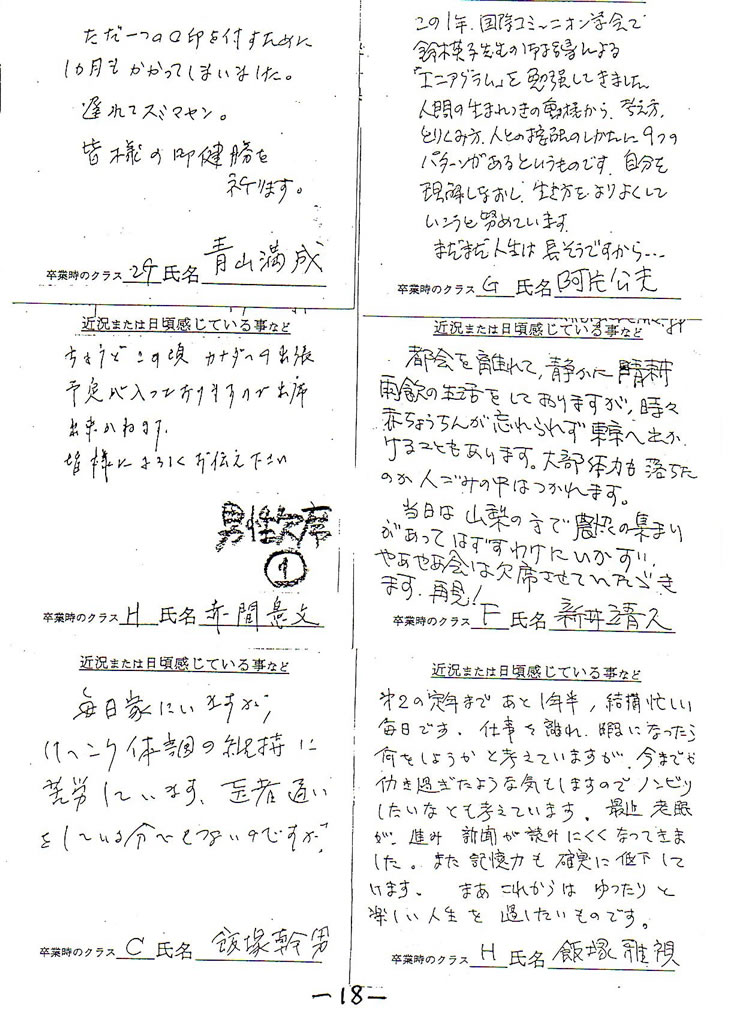 ただ一つの○印を付すために
1カ月もかかってしまいました。
遅れてスミマセン。
皆様の御健勝を
祈ります。
卒業時のクラス 29 氏名 青山満成
この1年、国際コミュニオン学会で
鈴木英子先生の御指導による
「エニアグラム」を勉強してきました
人間の生まれつきの動機から、考え方、
とりくみ方、人との接触のしかたに9つの
パターンがあるというものです。自分を
理解しなおし、生き方をよりよくして
いこうと努めています。
まだまだ人生は長そうですから…
卒業時のクラス G 氏名 阿片公夫
近況または日頃感じている事など
ちょうどこの頃 カナダへの出張
予定が入っておりますので出席
出来かねます。
皆様によろしくお伝え下さい
男性欠席
1
卒業時のクラス H 氏名 赤間
近況または日頃感じている事など
都会を離れて、静かに晴耕
雨飲の生活をしておりますが、時々
赤ちょうちんが忘れられず東京へ出か
けることもあります。大部体力も落ちた
のか人ごみの中はつかれます。
当日は山梨の方で農の集まり
があってはずすわけにいかず、
やあやあ会は欠席させていただき
ます。再見!
卒業時のクラス F 氏名 新井靖久
近況または日頃感じている事など
毎日家にいますが、
けっこう体調の維持に
苦労しています、医者通い
をしている分でもないのですが、
卒業時のクラス C 氏名 飯塚幹男
近況または日頃感じている事など
第2の定年まであと1年半、結構忙しい
毎日です。仕事を離れ、暇になったら
何をしようかと考えていますが、今まで
働き過ぎたような気もしますのでノンビリ
したいなとも考えています。最近 老眼
が、進み 新聞が読みにくくなってきま
した。また記憶力も確実に低下して
います。まあこれからはゆったりと
楽しい人生を過したいものです。
卒業時のクラス H 氏名 飯塚雅視
—18—